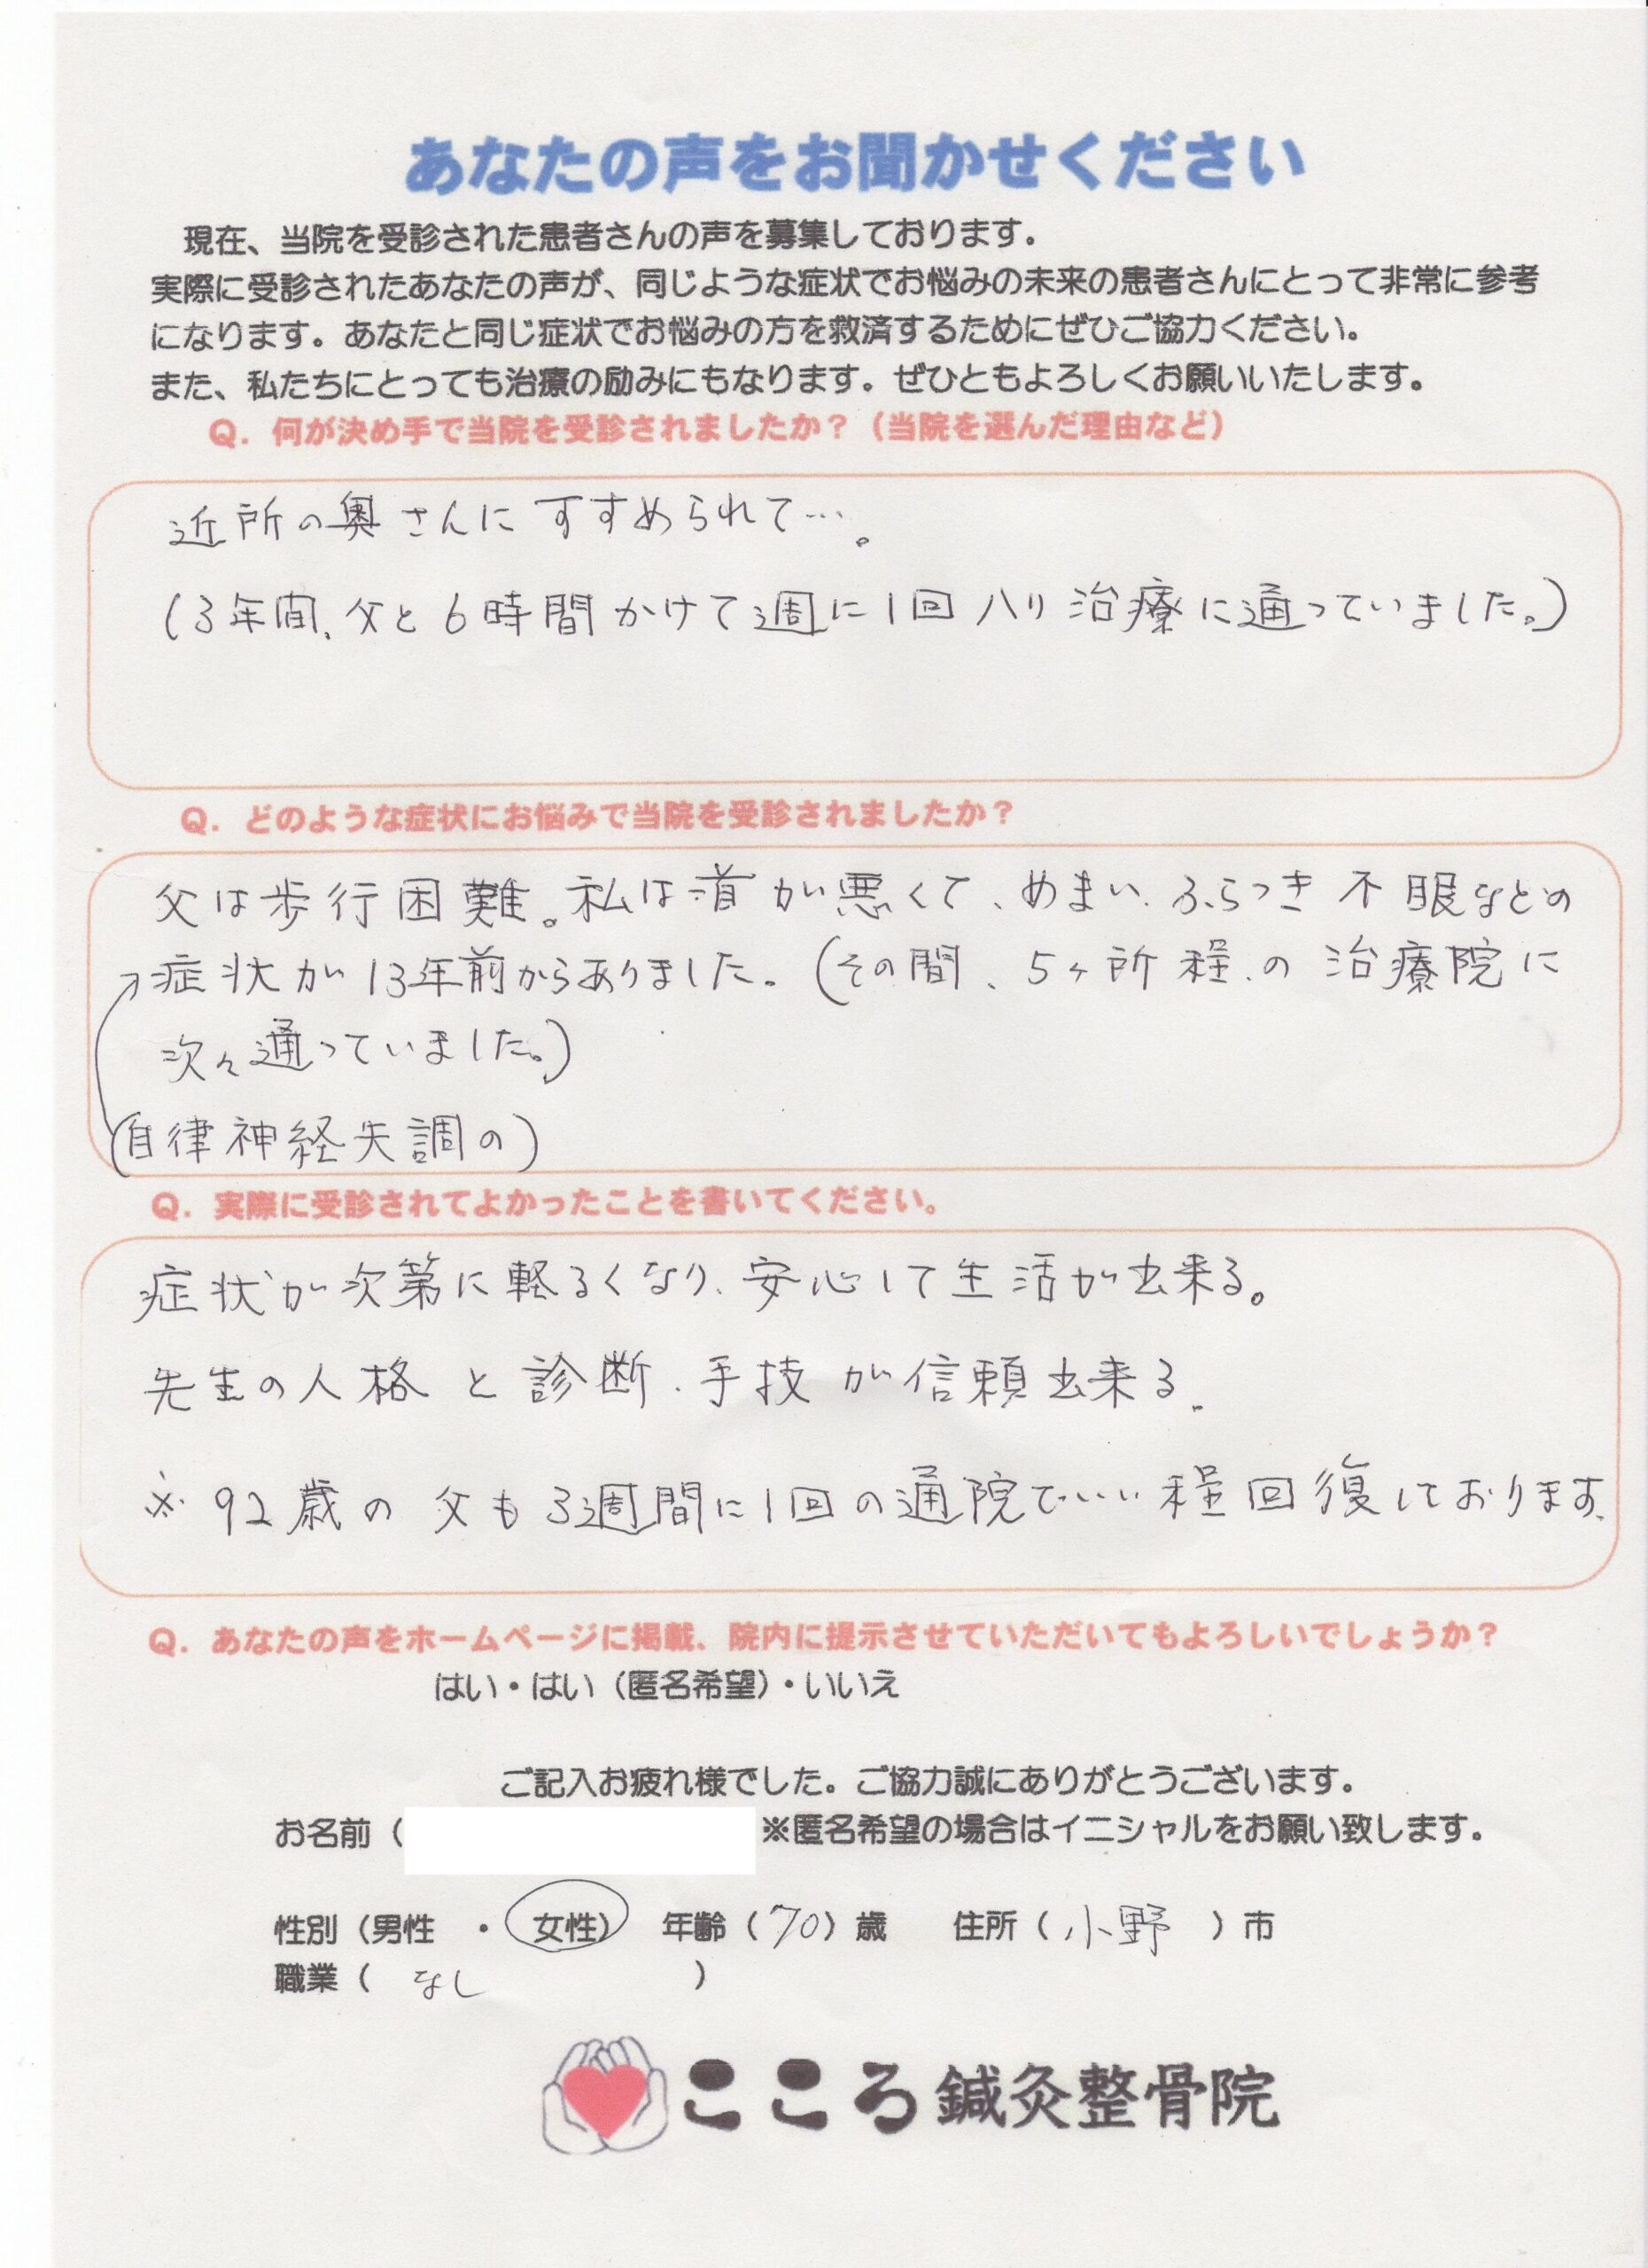 あなたの声をお聞かせください
現在、当院を受診された患者さんの声を募集しております。
実際に受診されたあなたの声が、同じような症状でお悩みの未来の患者さんにとって非常に参考
になります。あなたと同じ症状でお悩みの方を救済するためにぜひご協力ください。
また、私たちにとっても治療の励みにもなります。ぜひともよろしくお願いいたします。
Q. 何が決め手で当院を受診されましたか？（当院を選んだ理由など）
近所の奥さんにすすめられて…。
(3年間、父と6時間かけて週に1回ハリ治療に通っていました。)
Q. どのような症状にお悩みで当院を受診されましたか？
父は歩行困難。私は が悪くて、めまい、ふらつき 不眠などの
症状が13年前からありました。(その間、5ヶ所程の治療院に
次々通っていました。)
(自律神経失調の)
Q. 実際に受診されてよかったことを書いてください。
症状が次第に軽るくなり、安心して生活が出来る。
先生の人格と診断、手技が信頼出来る。
※ 92歳の父も3週間に1回の通院でいい程回復しております。
Q. あなたの声をホームページに掲載、院内に提示させていただいてもよろしいでしょうか？
はい・はい（匿名希望）・いいえ
ご記入お疲れ様でした。ご協力誠にありがとうございます。
お名前（ ※匿名希望の場合はイニシャルをお願い致します。
性別（男性 ・ 女性） 年齢（70）歳 住所（ 小野 ）市
職業（ なし ）
こころ鍼灸整骨院